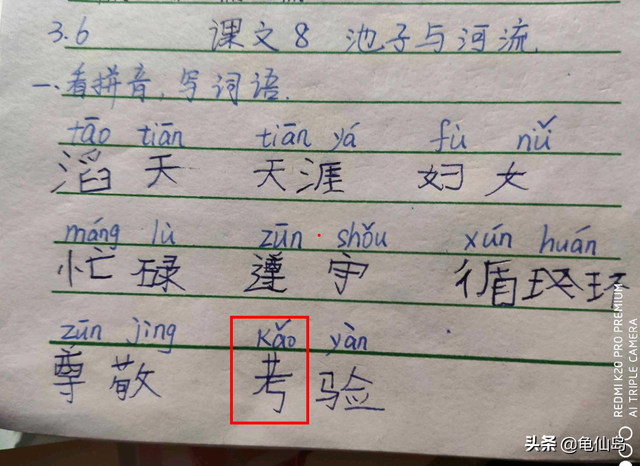 3.6 课文8 池子与河流.
一.看拼音,写词语.
tāo tiān tiān yá fù nǚ
滔 天 天 涯 妇 女
máng lù zūn shǒu xún huán
忙 碌 遵 守 循 环
zūn jìng kǎo yàn
尊 敬 考 验
REDMI K20 PRO PREMIUM
AI TRIPLE CAMERA
头条 @龟仙岛